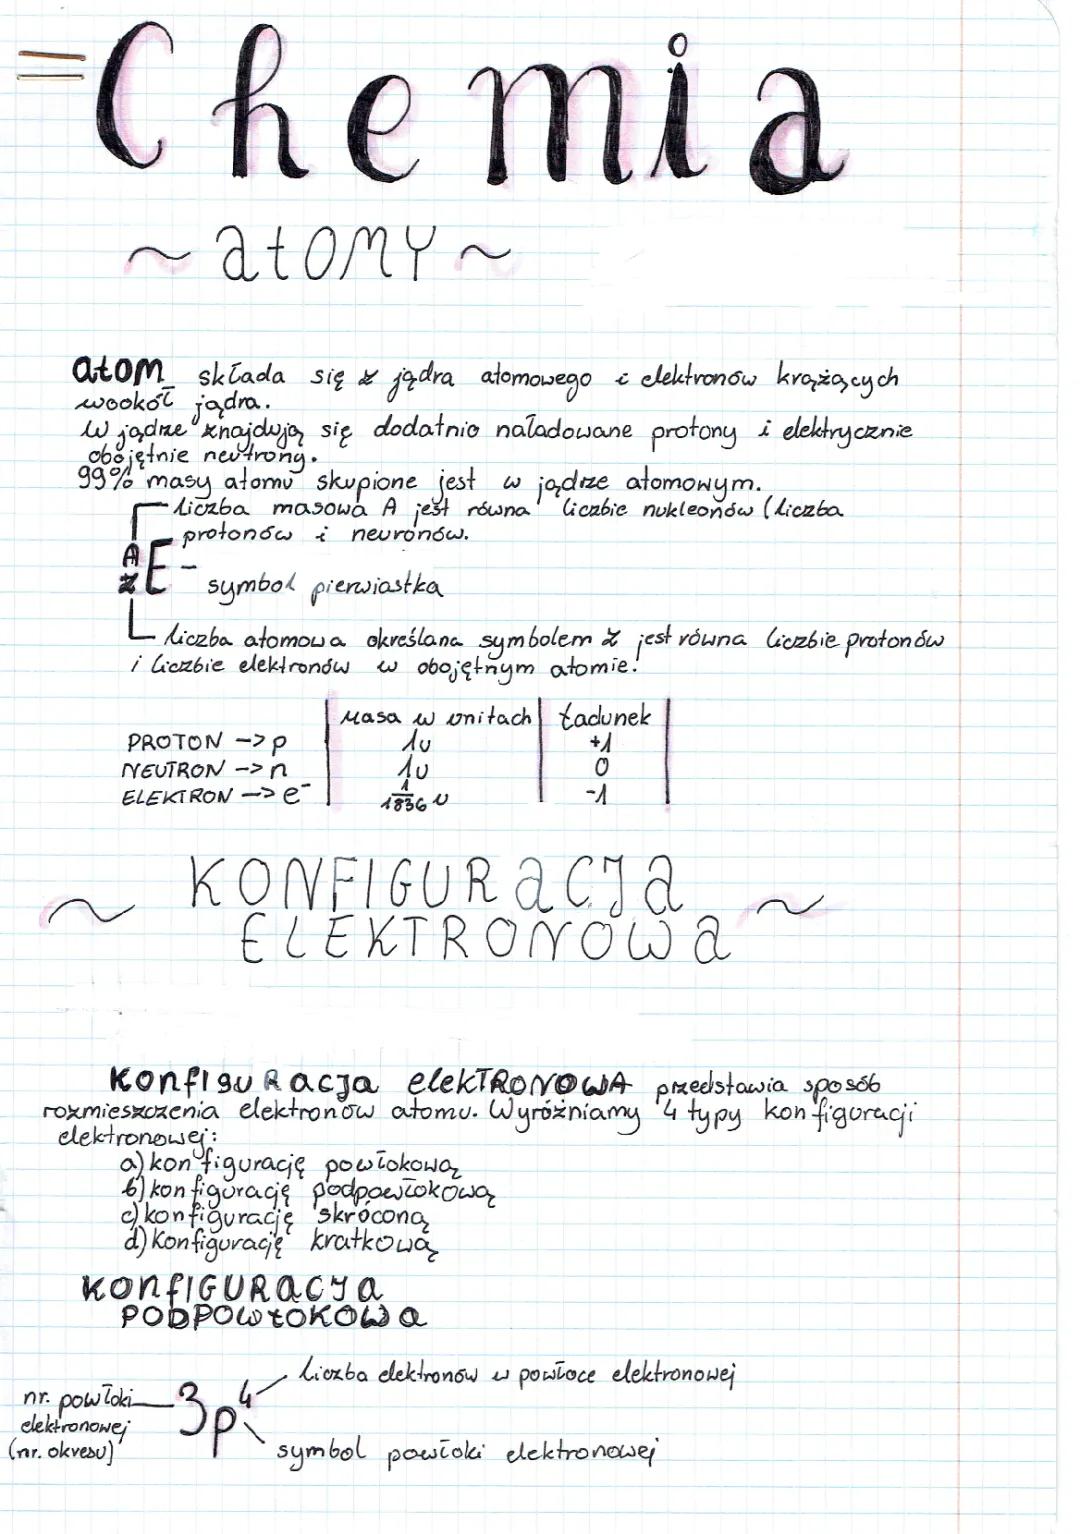 Chemia
~ atomy ~
atom składa się z jądra atomowego i elektronów krążących
wookół jądra.
W jądrze znajdują się dodatnio naładowane protony i elektrycznie
obojętnie neutrony.
99% masy atomu skupione jest w jądrze atomowym.
liczba masowa A jest równa liczbie nukleonów (liczba
protonów i neuronów.
A
Z E - symbol pierwiastka
liczba atomowa określana symbolem Z jest równa liczbie protonów
i liczbie elektronów w obojętnym atomie.
Masa w unitach Ładunek
PROTON -> p 1u +1
NEUTRON -> n 1u 0
ELEKTRON -> e⁻ 1/1836 u -1
~ KONFIGURACJA ~
ELEKTRONOWA
Konfiguracja elektronowa przedstawia sposób
rozmieszczenia elektronów atomu. Wyróżniamy 4 typy konfiguracji
elektronowej:
a) konfigurację powłokową
b) konfigurację podpowłokową
c) konfigurację skróconą
d) Konfigurację kratkową
KONFIGURACJA
PODPOWŁOKOWA
liczba elektronów w powłoce elektronowej
nr. powłoki
elektronowej
(nr. okresu)
3p⁴
symbol powłoki elektronowej